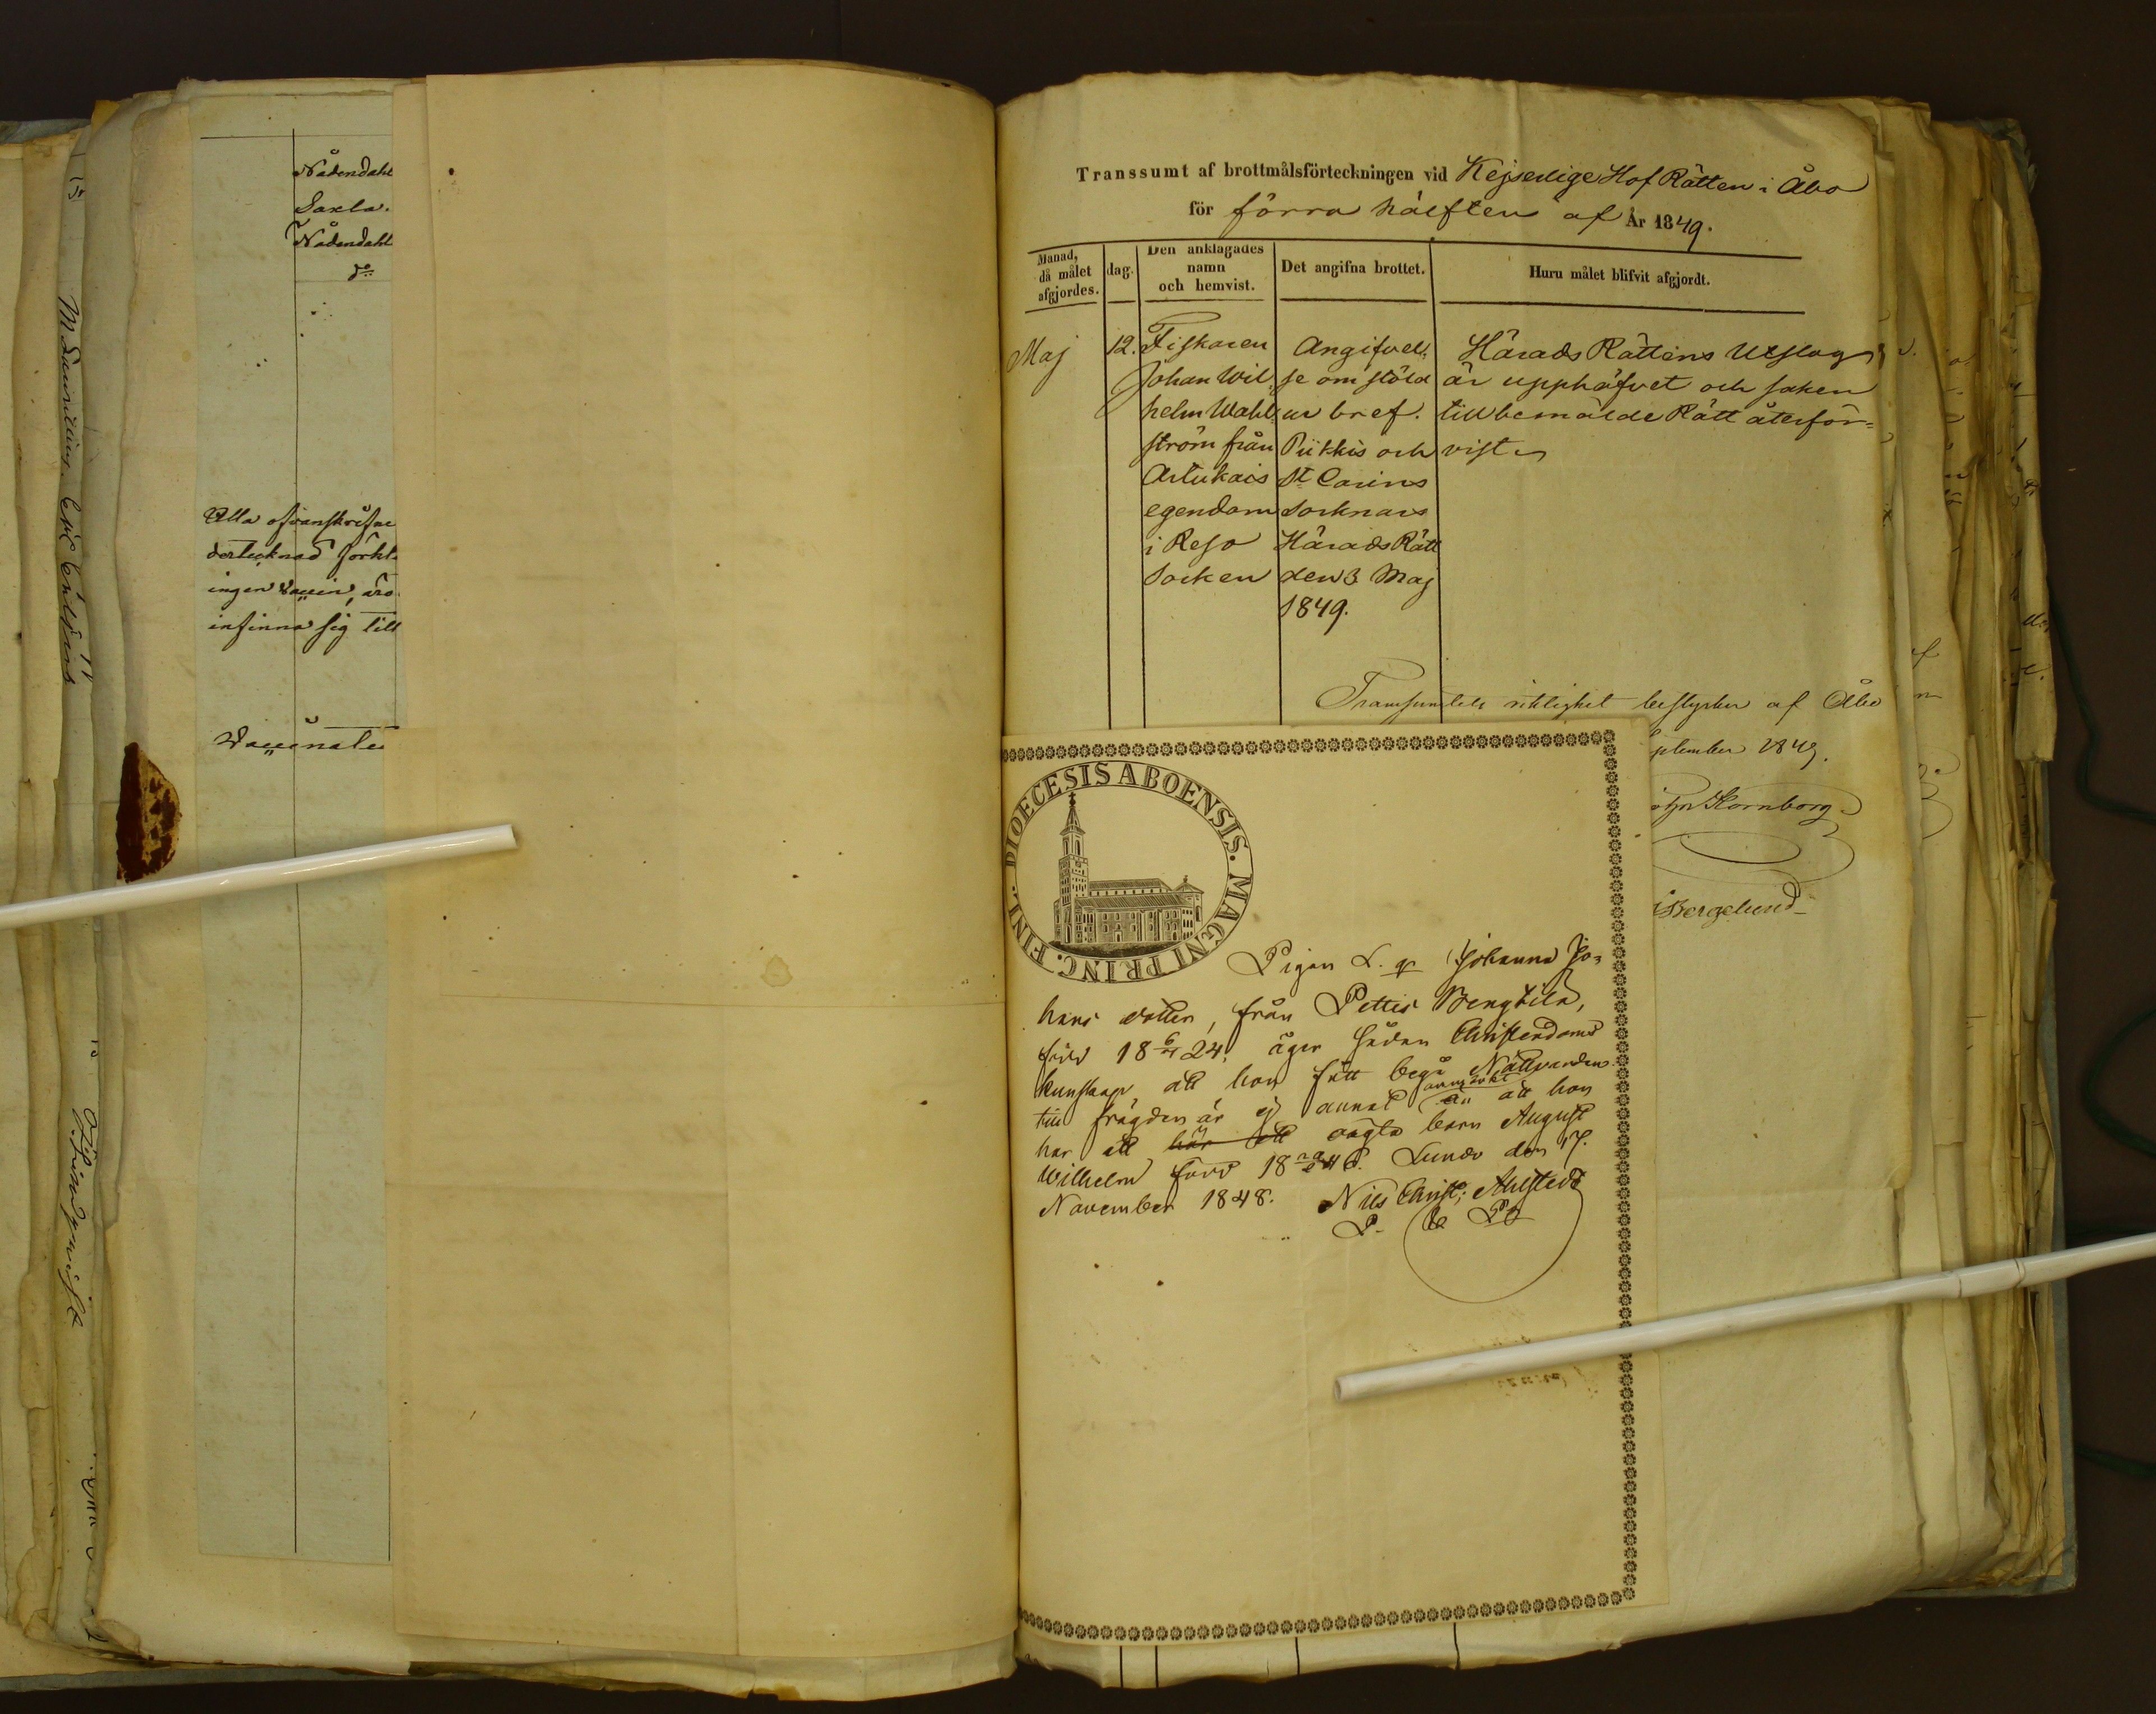 Nådendahl
Saxla.
Nådendahl
do
Alla ofvanskrifne
dertecknad
ingen vaccin,
infinna sig till
Transsumt af brottmålsförteckningen vid Kejserlige Hof Rätten i Åbo
för förra hälften af År 1849.
Månad, då målet afgjordes.
dag.
Den anklagades namn och hemvist.
Det angifna brottet.
Huru målet blifvit afgjordt.
Maj
12.
Fiskaren
Johan Wil-
helm Wahl-
ström från
Artukais
egendom
i Reso
Socken
Angifvel-
se om stöld
ur bref.
Piikkis och
St Carins
Socknars
Härads Rätt
den 3 Maj
1849.
Härads Rättens Utslag
är upphäfvet och saken
till bemälde Rätt återför-
vist
Transsumtets riktighet bestyrker af Åbo
ptember 1849.
Bergelund
DIOECESIS ABOENSIS. MAGNI PRINC. FINL.
Pigan L. q Johanna Jo-
hans dotter, från Pettis Bengtila,
född 18 6/11 24, äger sådan Christendoms
kunskap, att hon fått begå Nattvarden
till frägden är ej annat anmärkt än att hon
har ett här ett oägta barn August
Wilhelm född 18 Lundo den 17.
November 1848. Nils Christ; Ahlstedt